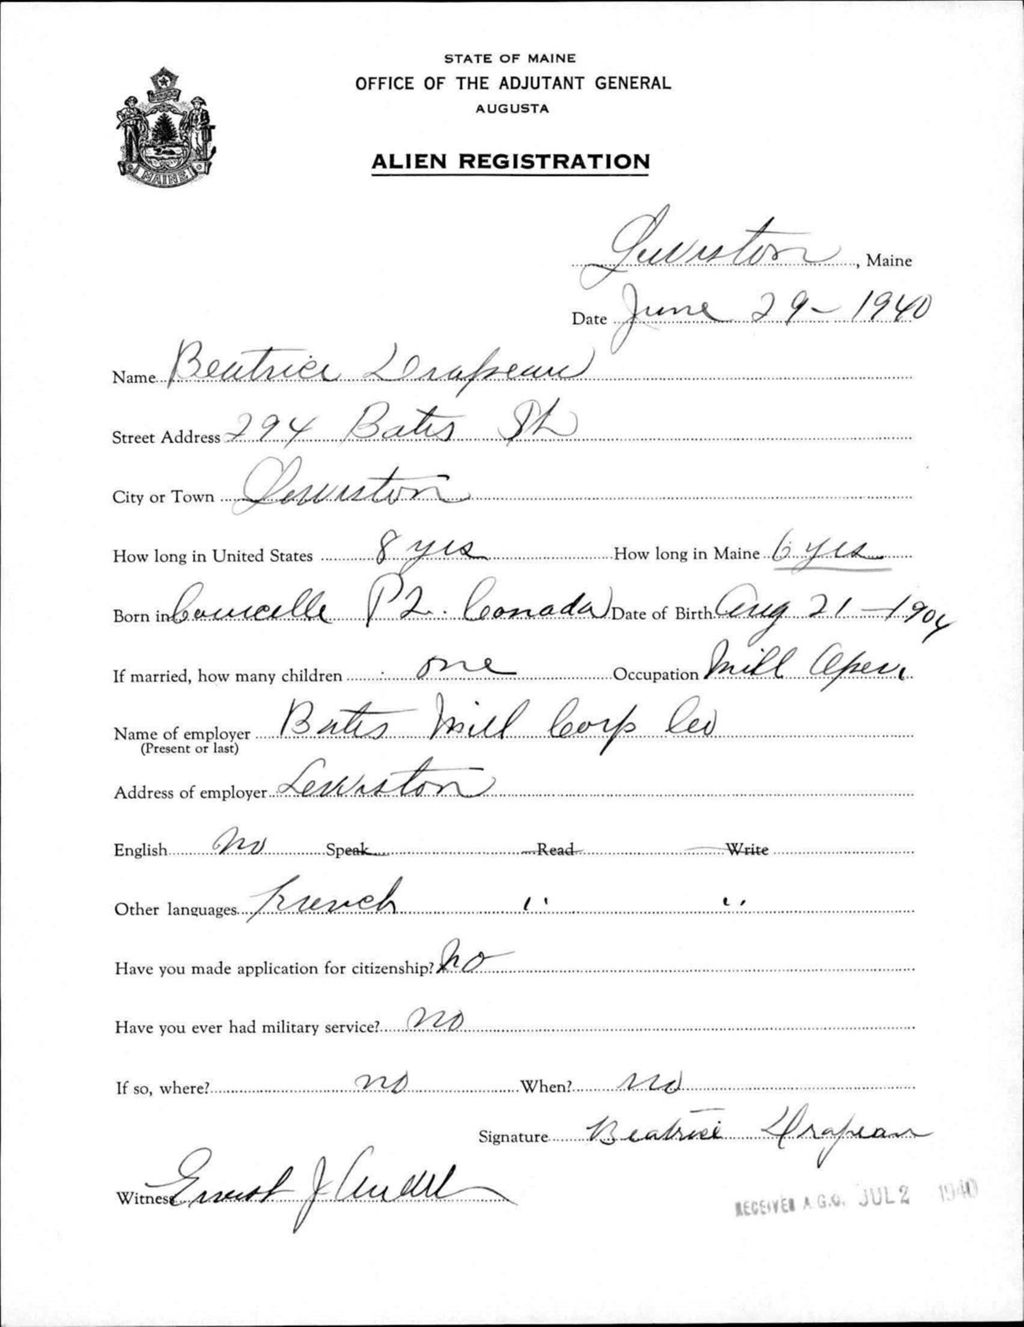 STATE OF MAINE
OFFICE OF THE ADJUTANT GENERAL
AUGUSTA
MAINE
ALIEN REGISTRATION
Lewiston, Maine
Date June 29 - 1940
Name Beatrice Drapeau
Street Address 294 Bates St
City or Town Lewiston
How long in United States 8 yrs How long in Maine 6 yrs
Born in Courcelle P2. Canada Date of Birth Aug 21 - 1904
If married, how many children one Occupation Mill Oper.
Name of employer Bates Mill Corp Co
(Present or last)
Address of employer Lewiston
English No Speak Read Write
Other languages French " "
Have you made application for citizenship? No
Have you ever had military service? No
If so, where? no When? no
Signature Beatrice Drapeau
Witness Ernest J
RECEIVED A.G.O. JUL 2 1940